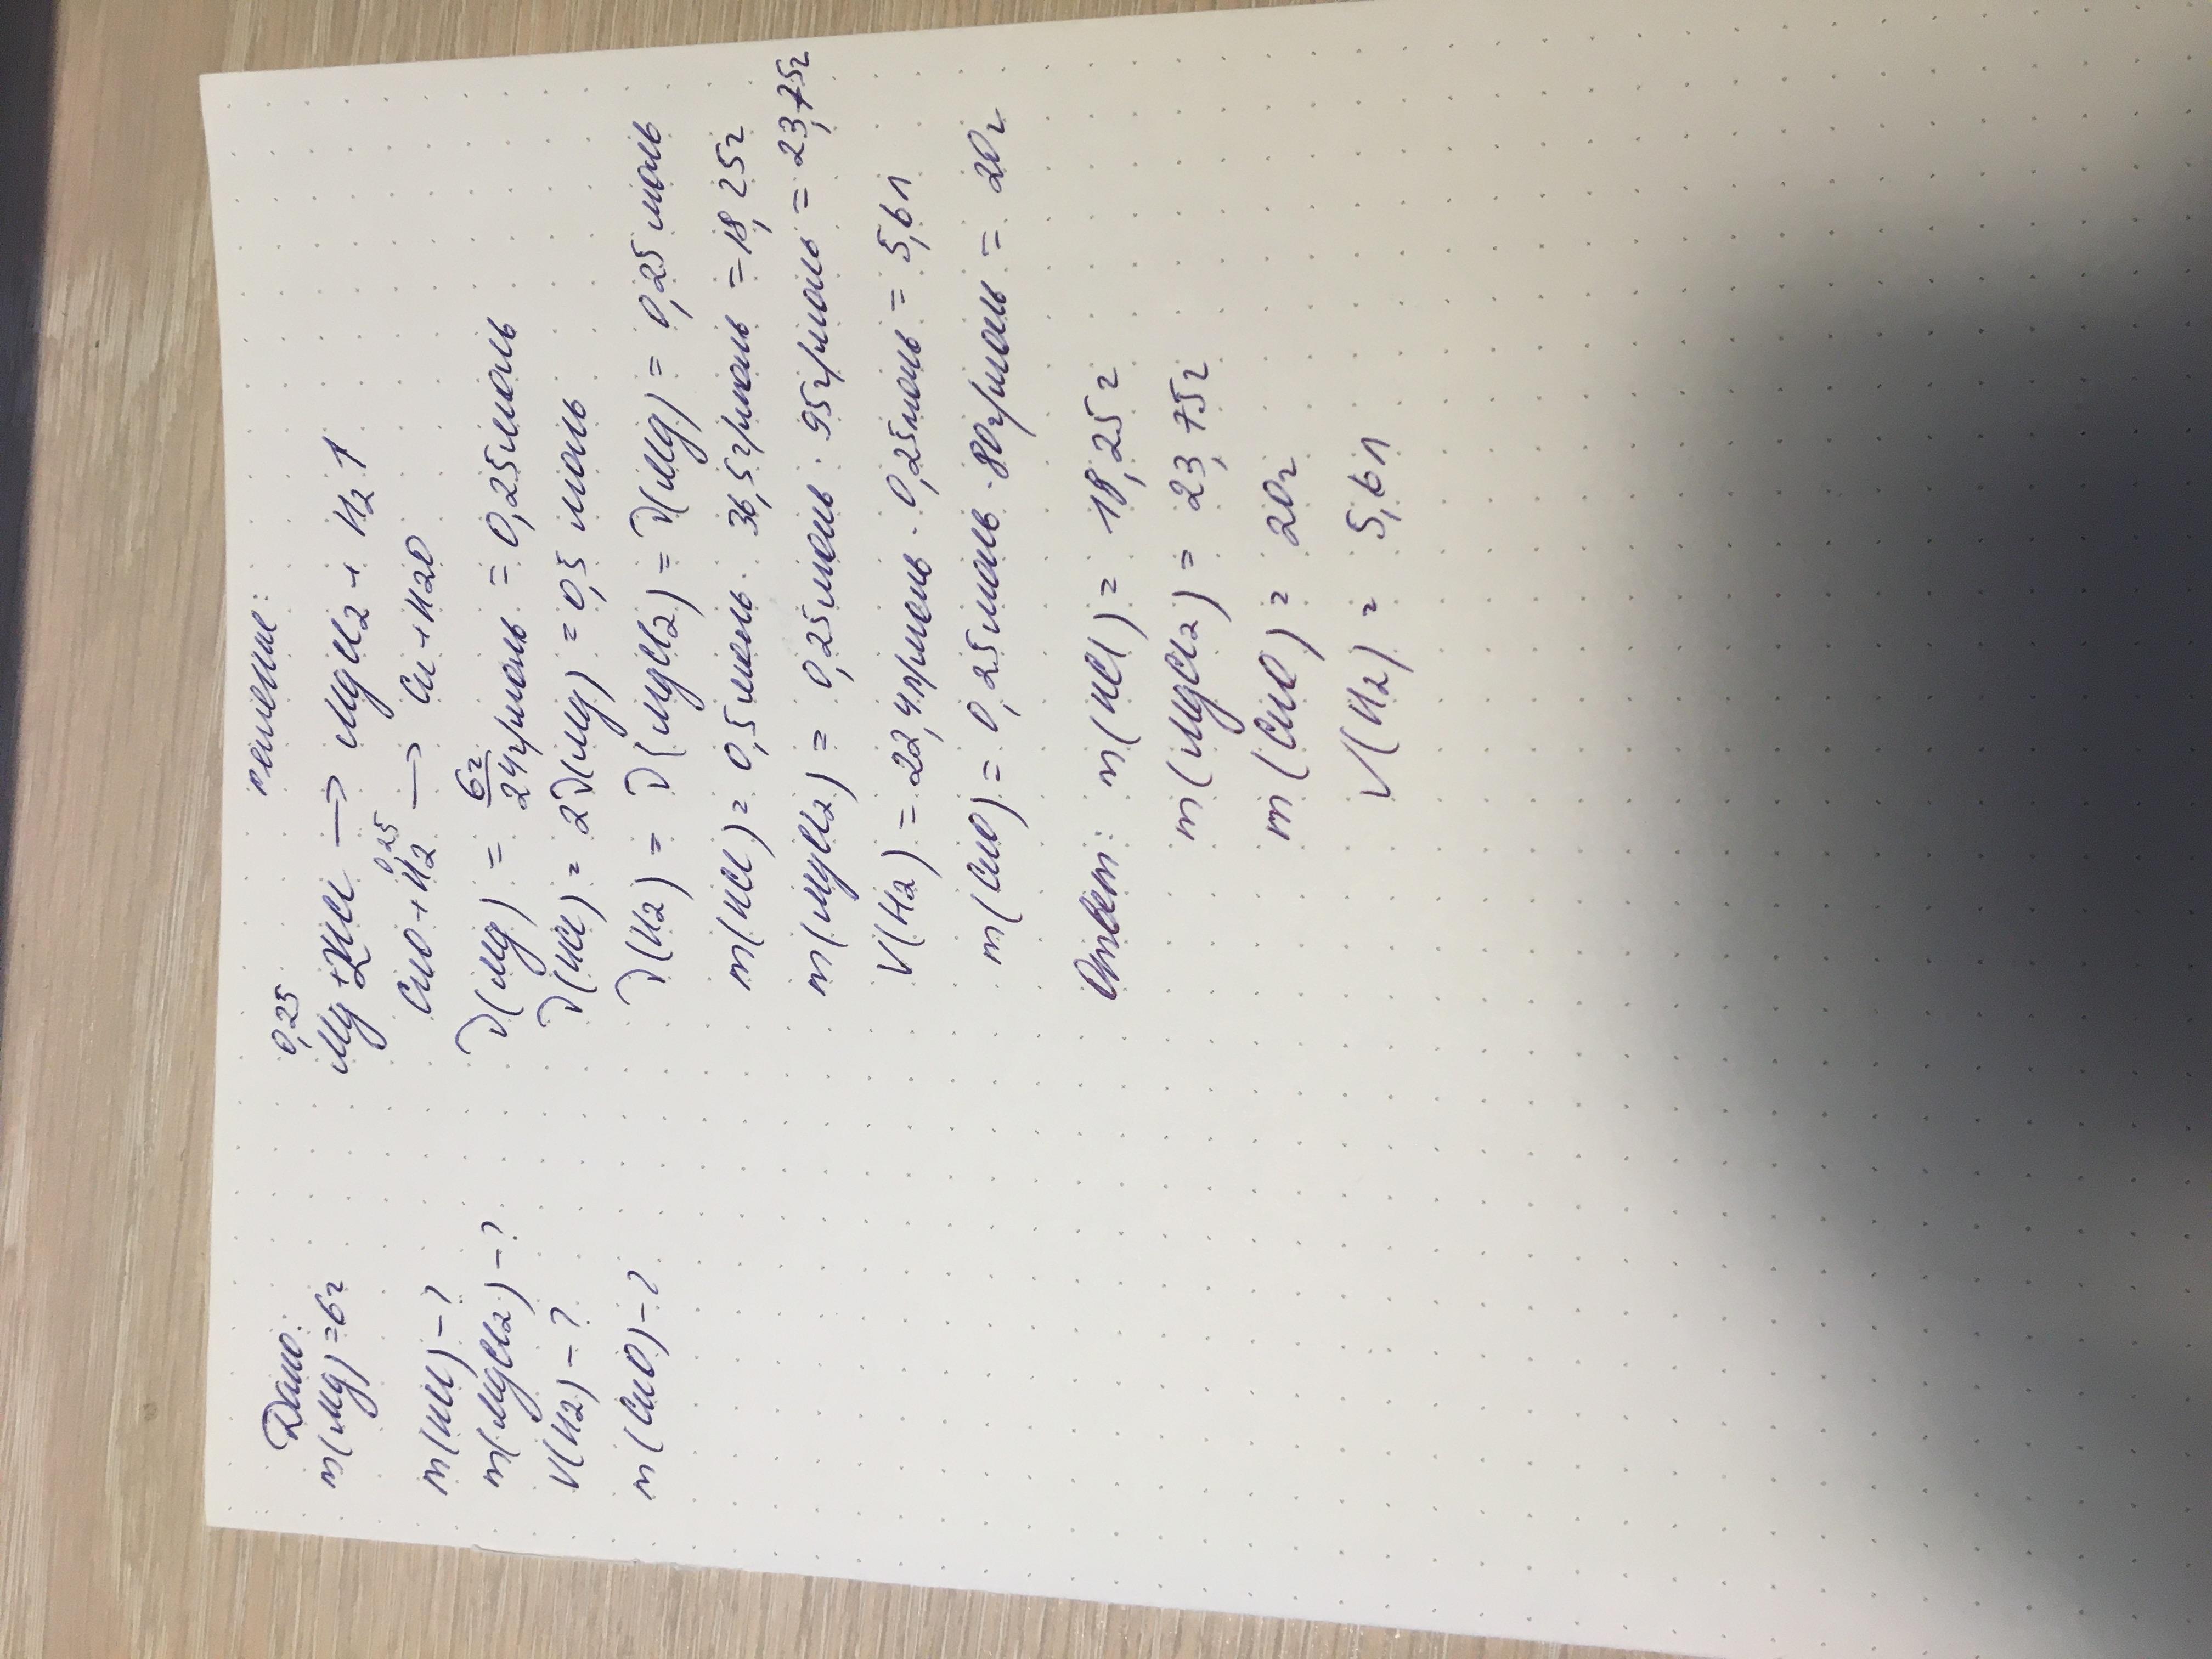 Дано:
m(Mg)=6г
m(HCl)-?
m(MgCl2)-?
V(H2)-?
m(CuO)-?
решение:
0,25
Mg+2HCl → MgCl2 + H2↑
0,25
CuO+H2 → Cu+H2O
ν(Mg) = 6г/24г/моль = 0,25моль
ν(HCl) = 2ν(Mg) = 0,5 моль
ν(H2) = ν(MgCl2) = ν(Mg) = 0,25 моль
m(HCl) = 0,5моль · 36,5г/моль = 18,25г
m(MgCl2) = 0,25моль · 95г/моль = 23,75г
V(H2) = 22,4л/моль · 0,25моль = 5,6л
m(CuO) = 0,25моль · 80г/моль = 20г
Ответ: m(HCl) = 18,25г
m(MgCl2) = 23,75г
m(CuO) = 20г
V(H2) = 5,6л